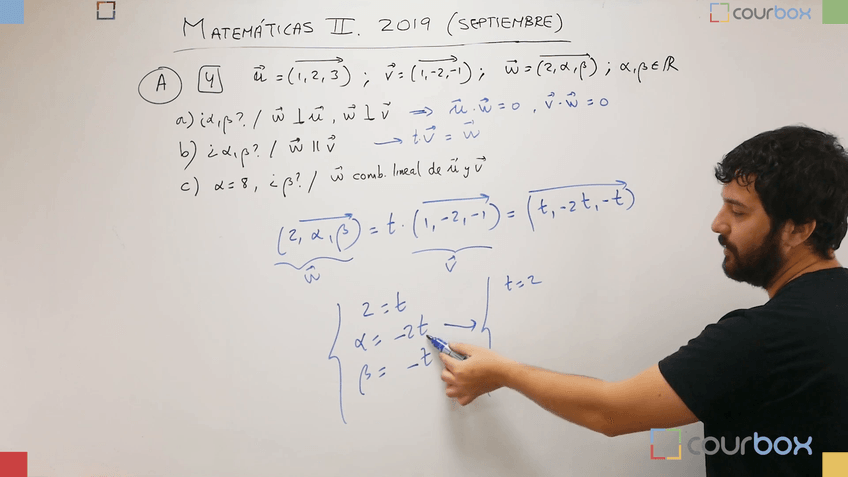 MATEMÁTICAS II. 2019 (SEPTIEMBRE)
courbox
A 4 u⃗ = (1, 2, 3) ; v⃗ = (1, -2, -1) ; w⃗ = (2, α, β) ; α, β ∈ ℝ
a) ¿α, β? / w⃗ ⊥ u⃗ , w⃗ ⊥ v⃗ ⇒ u⃗ · w⃗ = 0 , v⃗ · w⃗ = 0
b) ¿α, β? / w⃗ ∥ v⃗ → t v⃗ = w⃗
c) α = 8, ¿β? / w⃗ comb. lineal de u⃗ y v⃗
(2, α, β) = t · (1, -2, -1) = (t, -2t, -t)
w⃗ v⃗
2 = t t = 2
α = -2t →
β = -t
courbox